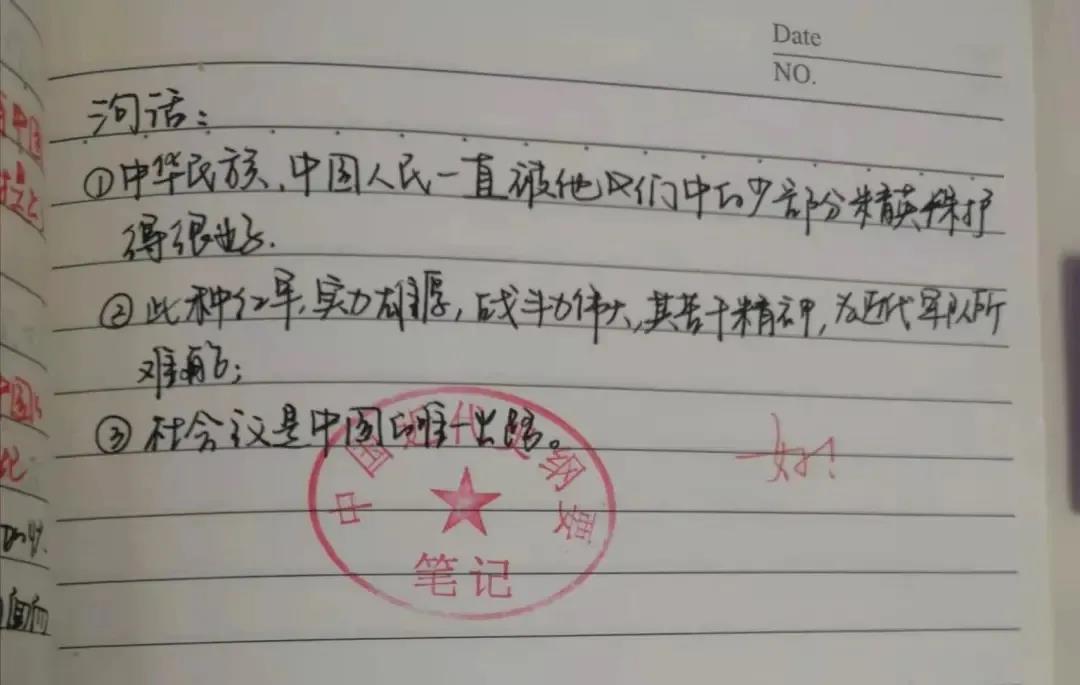 Date
NO.
三句话：
①中华民族、中国人民一直被他们中的少部分精英保护
得很好.
②此种红军,实力雄厚,战斗力伟大,其苦干精神,为近代军队所
难有的;
③社会主义是中国的唯一出路。
好!
中国近代史纲要
笔记
中国